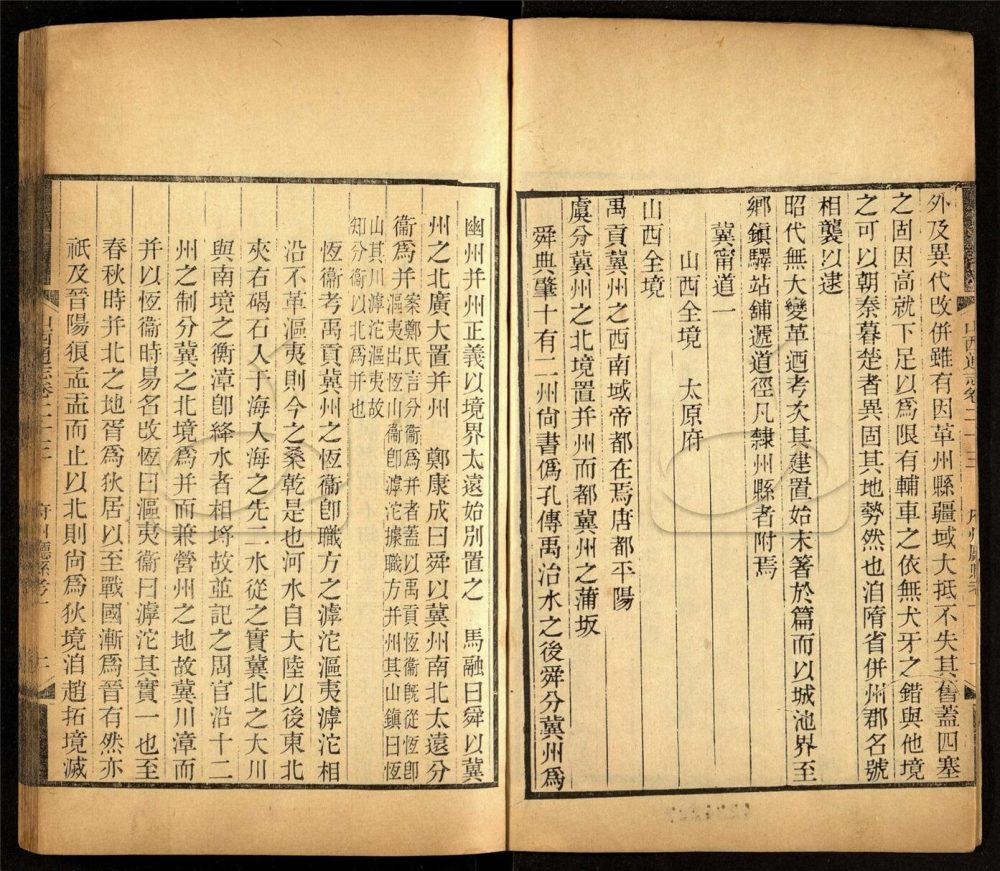 外及異代改併雖有因革州縣疆域大抵不失其舊蓋四塞
之固因高就下足以爲限有輔車之依無犬牙之錯與他境
之可以朝秦暮楚者異固其地勢然也洎隋省併州郡名號
相襲以逮
昭代無大變革迺考次其建置始末箸於篇而以城池界至
鄉鎮驛站舖遞道徑凡隸州縣者附焉
冀甯道一
山西全境　太原府
山西全境
禹貢冀州之西南域帝都在焉唐都平陽
虞分冀州之北境置并州而都冀州之蒲坂
舜典肇十有二州尙書僞孔傳禹治水之後舜分冀州爲
幽州并州正義以境界太遠始別置之　馬融曰舜以冀
州之北廣大置并州　鄭康成曰舜以冀州南北太遠分
衞爲并案鄭氏言分衞爲并者蓋以禹貢恆衞旣從恆卽
漚夷出恆山衞卽滹沱據職方并州其山鎮曰恆
山其川滹沱漚夷故
知分衞以北爲并也
恆衞考禹貢冀州之恆衞卽職方之滹沱漚夷滹沱相
沿不革漚夷則今之桑乾是也河水自大陸以後東北
夾右碣石入于海入海之先二水從之實冀北之大川
與南境之衡漳卽絳水者相埒故並記之周官沿十二
州之制分冀之北境爲并而兼營州之地故冀川漳而
并以恆衞時易名改恆曰漚夷衞曰滹沱其實一也至
春秋時并北之地胥爲狄居以至戰國漸爲晉有然亦
祇及晉陽狼孟盂而止以北則尙爲狄境洎趙拓境滅
山西通志卷二十三　府州廳縣考一